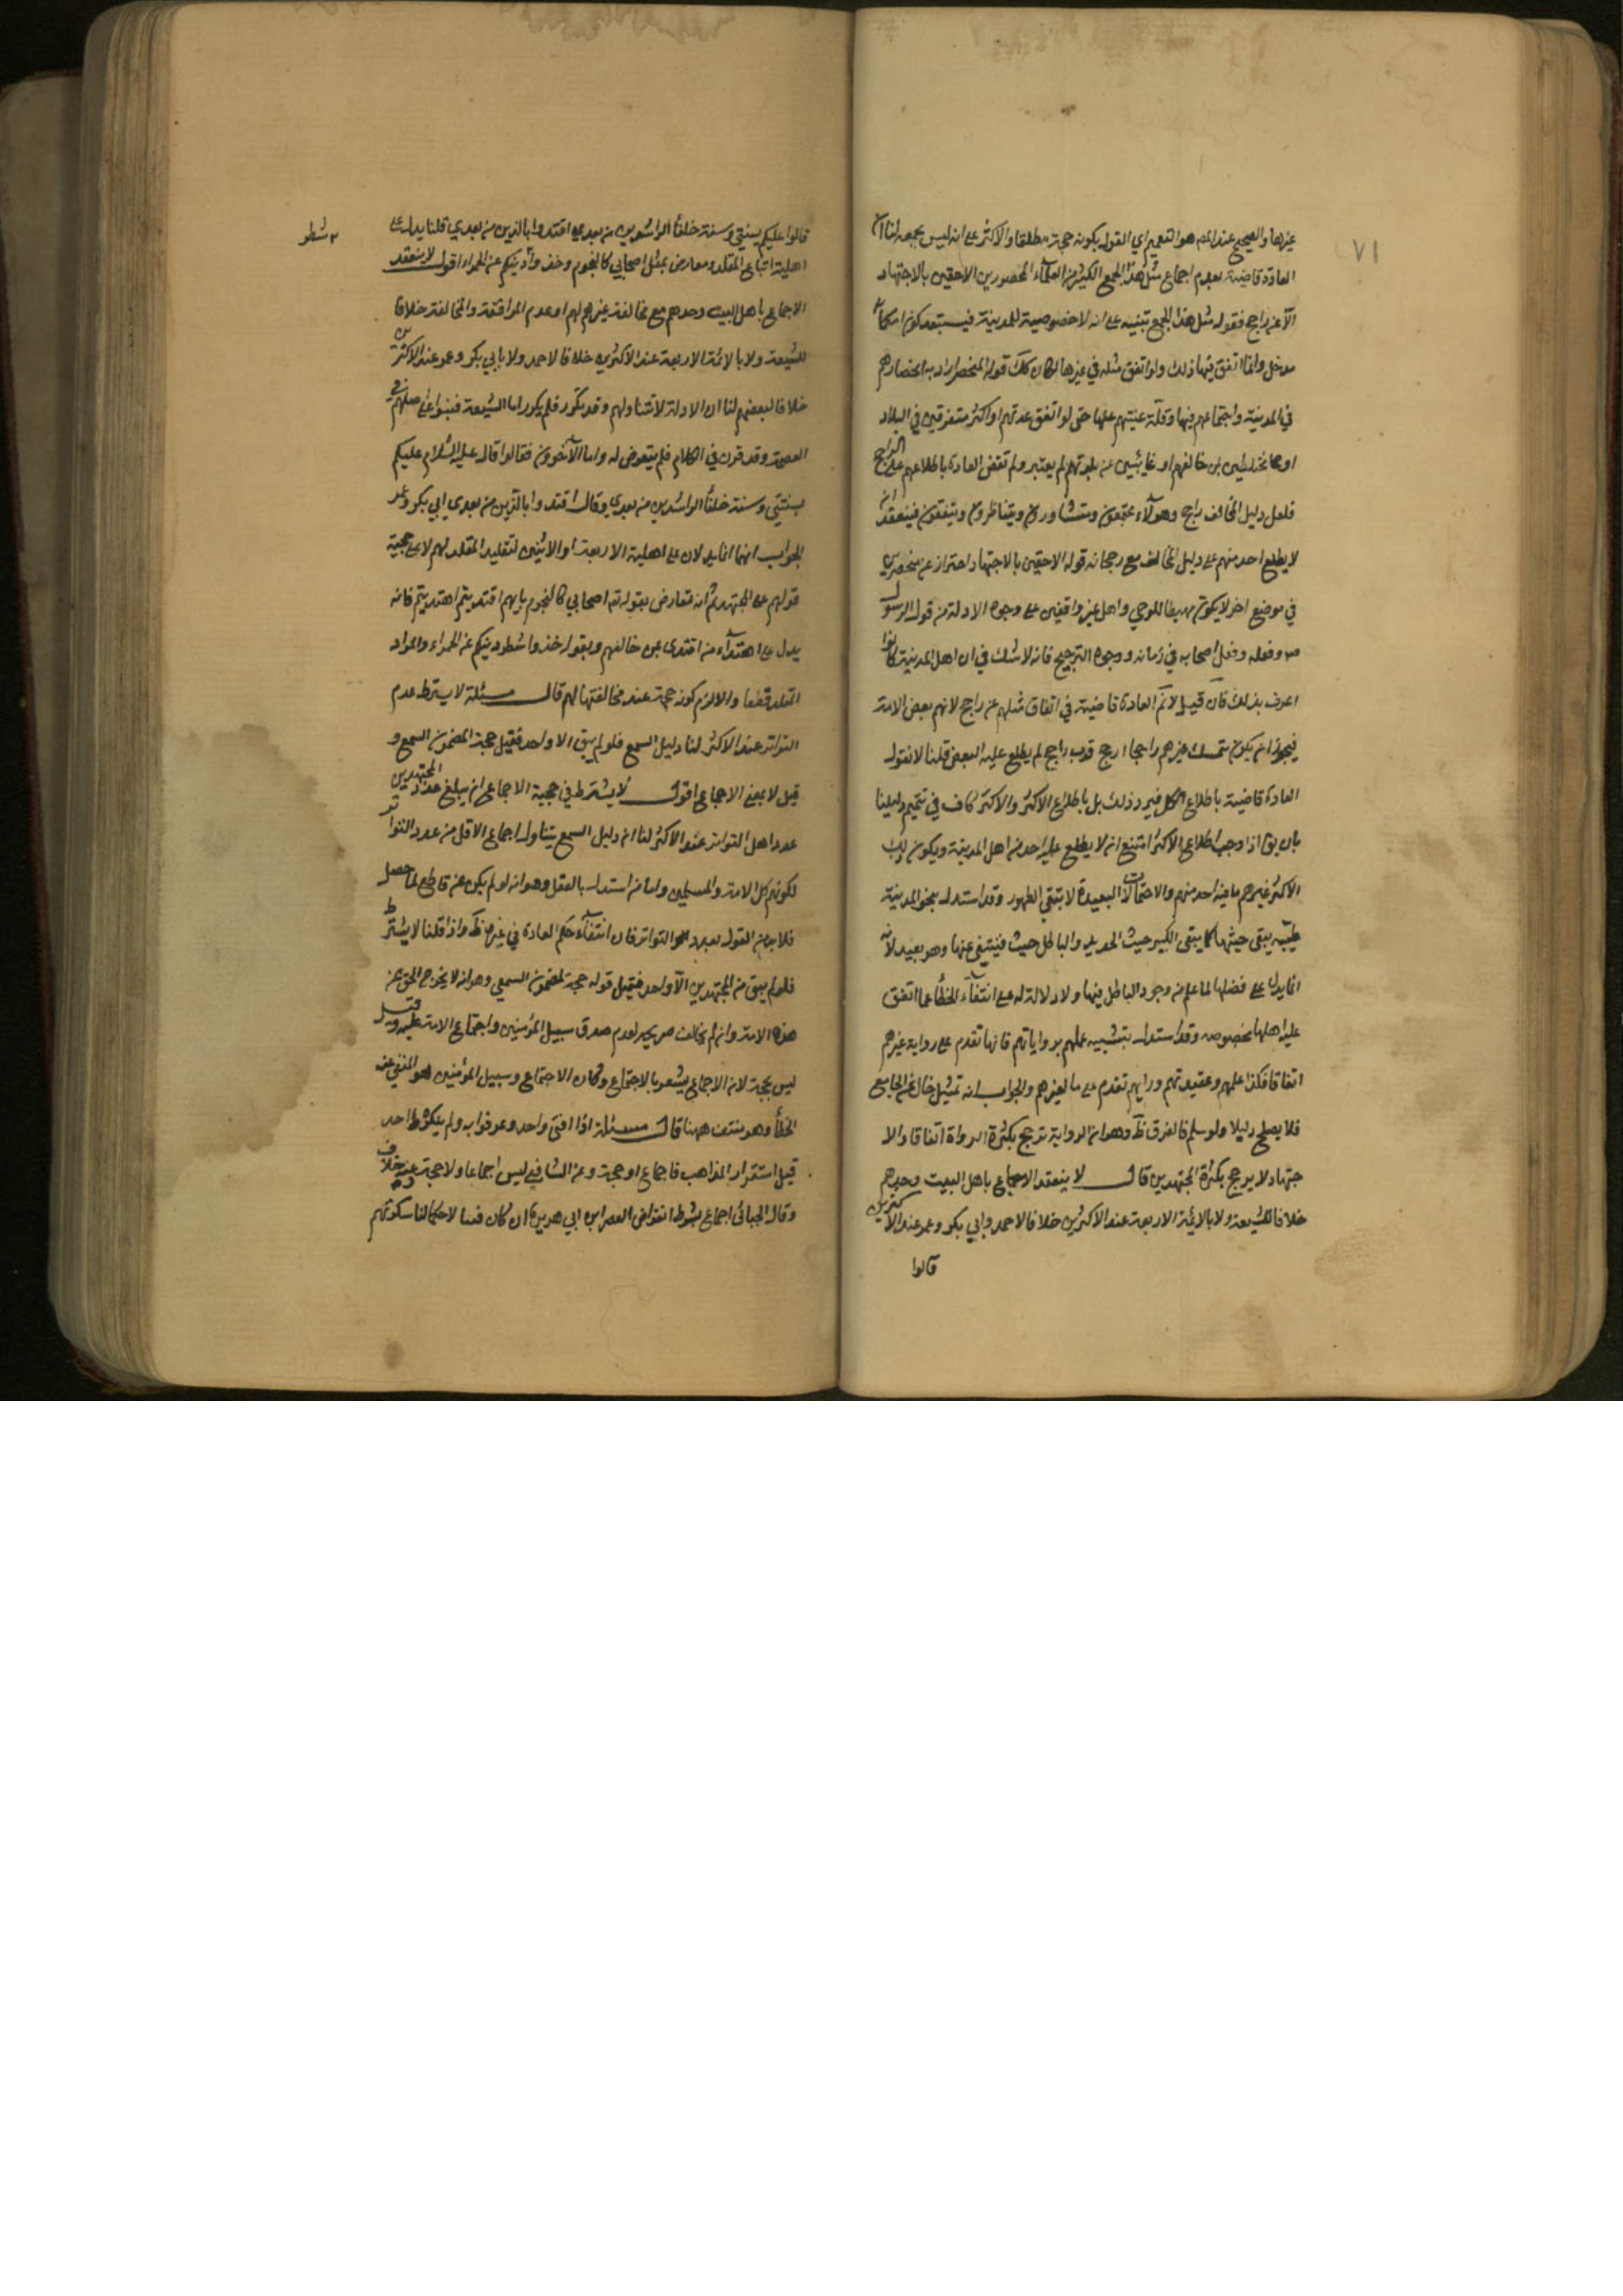 ٧١
غيرها والصحيح عند المصـ هو التعميم اي القول بكونه حجة مطلقا والاكثر على انه ليس بحجة لنا ان
العادة قاضية بعدم اجماع مثل هذا الجمع الكثير من العلماء المحصورين الاحقين بالاجتهاد
الا عن راجح فقوله مثل هذا الجمع تنبيه على انه لا خصوصية للمدينة فيستبعد كون امكانه
مدخل وانما اتفق فيها ذلك ولو اتفق مثله في غيرها لكان كك قوله المنحصر اراد به انحصارهم
في المدينة واجتماعهم فيها وقلة غيبتهم عنها حتى لو اتفق عدتهم او اكثر متفرقين في البلاد
او مختلطين بمن خالفهم او غايبين عن بلدتهم لم يعتبر ولم تقض العادة باطلاعهم على الراجح
فلعل دليل المخالف راجح وهولآء مجتمعون ومتشاورون ويتناظرون ويتفقون فينعقد ان
لا يطلع احد منهم على دليل المخالف مع رجحانه قوله الاحقين بالاجتهاد احتراز عن منحصرين
في موضع اخر لا يكون مهبطا للوحي واهل غير واقفين على وجوه الادلة من قول الرسول
صـ وفعله وفعل اصحابه في زمانه ووجوه الترجيح فانه لا شك في ان اهل المدينة كانوا
اعرف بذلك فان قيل لا نم العادة قاضية في اتفاق مثلهم عن راجح لانهم بعض الامة
فيجوز ان يكون متمسك غيرهم راجحا ارجح فرب راجح لم يطلع عليه البعض قلنا لا نقول
العادة قاضية باطلاع الكل فيرد ذلك بل باطلاع الاكثر والاكثر كاف في تتميم دليلنا
بان يق اذا وجب اطلاع الاكثر امتنع ان لا يطلع عليه احد من اهل المدينة ويكون ذلك
الاكثر غيرهم ما فيه احد منهم والاحتمالات البعيدة لا تنفي الظهور وقد استدل بنحو المدينة
طيبة ينفى خبثها كما ينفى الكير خبث الحديد والباطل خبث فينتفي عنها وهو بعيد لانه
انما يدل على فضلها لما علم من وجود الباطل فيها ولا دلالة له على انتفآء الخطأ عما اتفق
عليه اهلها بخصوصه وقد استدل بتشبيه عملهم برواياتهم فانها تقدم على رواية غيرهم
اتفاقا فكذا علمهم وعقيدتهم ورايهم تقدم على ما لغيرهم والجواب انه تمثيل خال عن الجامع
فلا يصلح دليلا ولو سلم فالفرق ظ وهو ان الرواية ترجح بكثرة الرواة اتفاقا والا
جتهاد لا يرجح بكثرة المجتهدين قال لا ينعقد الاجماع باهل البيت وحدهم
خلافا للشيعة ولا بالائمة الاربعة عند الاكثرين خلافا لاحمد وابي بكر وعمر عند الاكثرين
قالوا
قالوا عليكم بسنتي وسنة خلفآ الراشدين من بعدي اقتدوا بالذين من بعدي قلنا يدل على
٢ شطر
اهلية اتباع المقلد ومعارض بمثل اصحابي كالنجوم وخذوا دينكم عن الحمراء اقول لا ينعقد
الاجماع باهل البيت وحدهم مع مخالفة غيرهم لهم او عدم الموافقة والمخالفة خلافا
للشيعة ولا بالائمة الاربعة عند الاكثرين خلافا لاحمد ولا بابي بكر وعمر عند الاكثرين
خلافا لبعضهم لنا ان الادلة لا تتناولهم وقد تكرر فلم يكرر اما الشيعة فبنوا على اصلهم في
العصمة وقد قرر في الكلام فلم يتعرض له واما الآخرون فقالوا قال عليه السلام عليكم
بسنتي وسنة خلفآ الراشدين من بعدي وقال اقتدوا بالذين من بعدي ابي بكر وعمر
الجواب انهما انما يدلان على اهلية الاربعة او الاثنين لتقليد المقلد لهم لا على حجية
قولهم على المجتهد ثم انه متعارض بقوله تم اصحابي كالنجوم بايهم اقتديتم اهتديتم فانه
يدل على اهتدآء من اقتدى بمن خالفهم وبقوله خذوا شطر دينكم عن الحمراء والمراد
المقلد قطعا والا لزم كونه حجة عند مخالفتها لهم قال مسئلة لا يشترط عدم
التواتر عند الاكثر لنا دليل السمع فلو لم يبق الا واحد فقيل حجة لمضمون السمع و
قيل لا لمعنى الاجماع اقول لا يشترط في حجية الاجماع ان يبلغ عدد المجتهدين
عدد اهل التواتر عند الاكثر لنا ان دليل السمع يتناول اجماع الاقل من عدد التواتر
لكونهم كل الامة والمسلمين واما من استدل بالعقل وهو انه لو لم يكن عن قاطع لما حصل
فلا بد من القول بعدد التواتر فان انتفآء حكم العادة في غيره ظ واذا قلنا لا يشترط
فلو لم يبق من المجتهدين الا واحد فقيل قوله حجة لمضمون السمعي وهو انه لا يخرج الحق عن
هذه الامة وان لم يخالف صريحه لعدم صدق سبيل المؤمنين واجتماع الامة عليه وقيل
ليس بحجة لان الاجماع يشعر بالاجتماع وكان الاجتماع وسبيل المؤمنين هو المنفي عنه
الخطأ وهو منتف ههنا قال مسئلة اذا افتى واحد وعرفوا به ولم ينكره احد
قبل استقرار المذاهب فاجماع او حجة وعن الشافعي ليس اجماعا ولا حجة وعنه خلافه
وقال الجبائى اجماع بشرط انقراض العصر ابن ابي هريرة ان كان فتيا لا حكما لنا سكوتهم